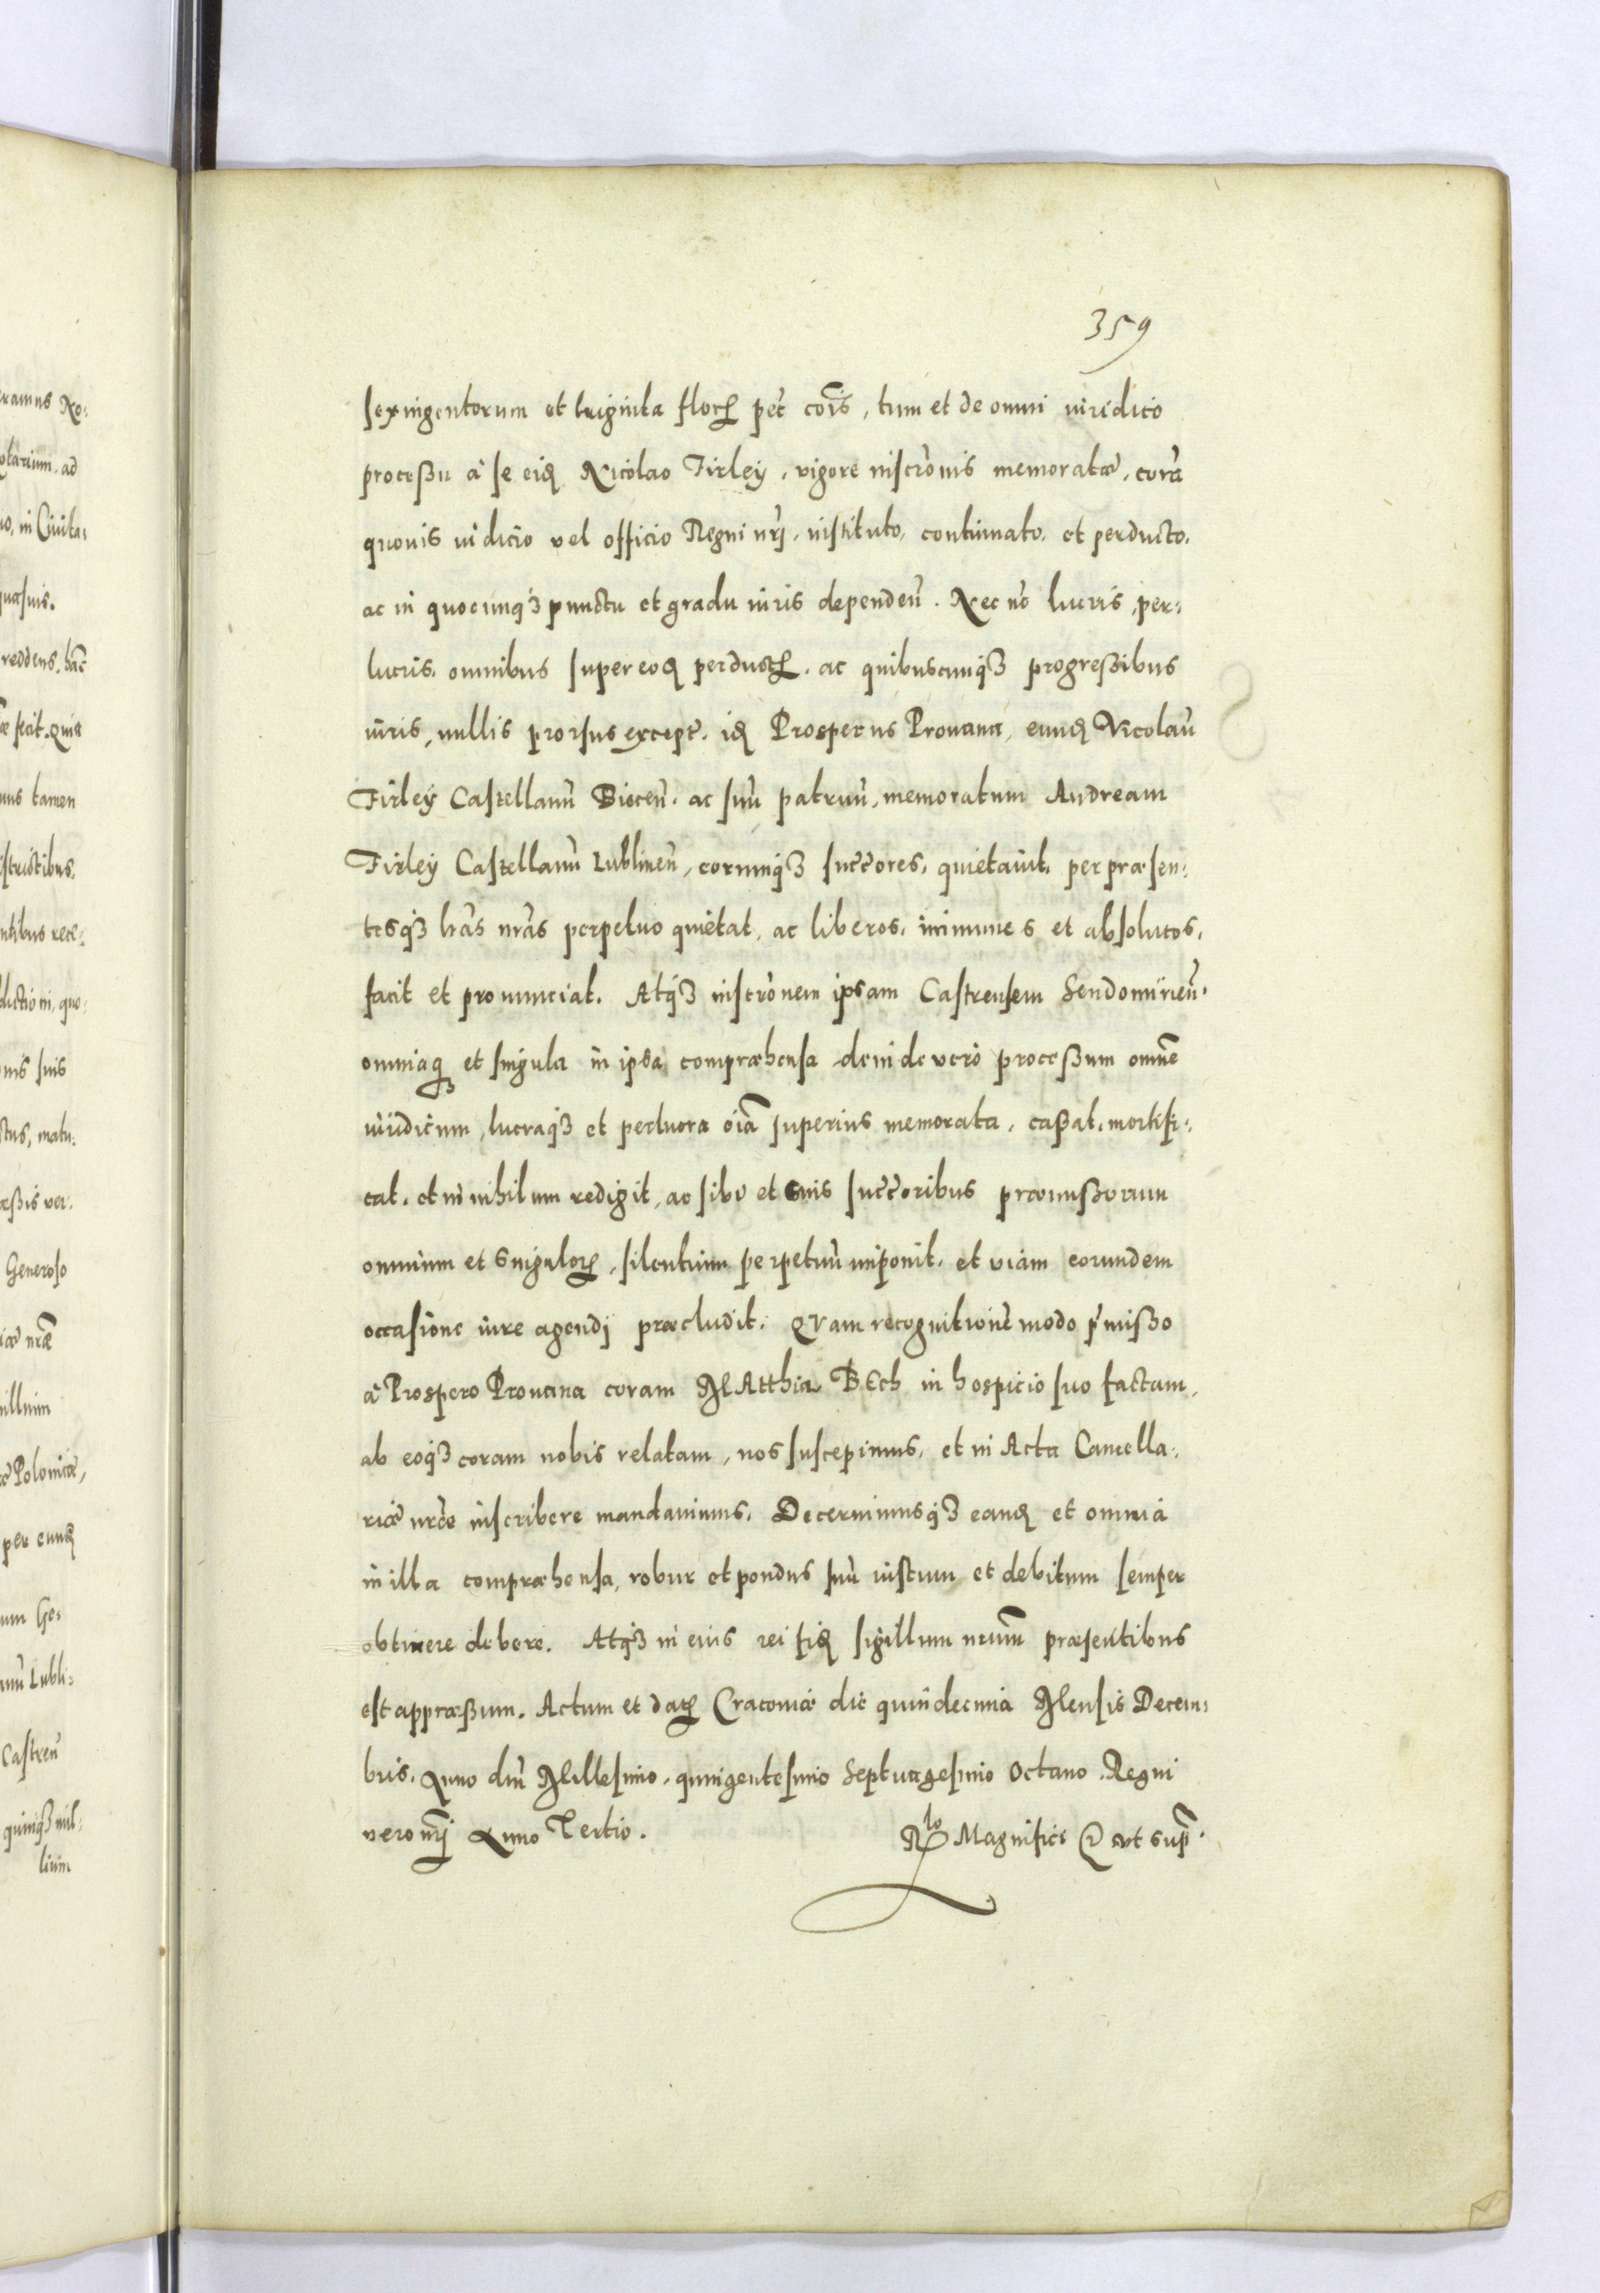 359
sexingentorum et triginta floꝝ pec̃ cois̃, tum et de omni iuridico
processu â se eidꝫ Nicolao Firley, vigore inscrõnis memoratæ, corã
quouis iudicio vel officio Regni nrĩ, instituto, continuato, et perducto,
ac in quocunqꝫ punctu et gradu iuris dependeñ. Nec nõ lucris, per-
lucris, omnibus super eodꝫ perductꝫ, ac quibuscunqꝫ progressibus
iuris, nullis prorsus except̃. idꝫ Prosperus Prouana, eundꝫ Nicolaũ
Firley Castellanũ Bieceñ. ac suũ patruũ, memoratum Andream
Firley Castellanũ Lublineñ, eorumqꝫ succ̃ores, quietauit, per præsen-
tesqꝫ lrãs nrãs perpetuo quietat, ac liberos, immunes et absolutos,
facit et pronunciat. Atqꝫ inscrõnem ipsam Castrensem Sendomirieñ.
omniaqꝫ et singula in ipsa compræhensa deinde verò processum omnẽ
iuridicum, lucraqꝫ et perlucra oĩa superius memorata, cassat, mortifi-
cat, et in nihilum redigit, ac sibi et suis succ̃oribus præmissorum
omnium et singuloꝝ, silentium perpetuũ imponit, et viam eorundem
occasione iure agendi præcludit. Quam recognitionẽ modo p̃misso
â Prospero Prouana coram MAtthia BEch in hospicio suo factam,
ab eoqꝫ coram nobis relatam, nos suscepimus, et in Acta Cancella-
riæ nrẽ inscribere mandauimus, Decernimusqꝫ eandꝫ et omnia
in illa compræhensa, robur et pondus suũ iustum et debitum semper
obtinere debere. Atqꝫ in eius rei fidꝫ sigillum nrum̃ præsentibus
est appræssum. Actum et datꝫ Cracouiæ die quindecima Mensis Decem-
bris, Anno dnĩ Millesimo, quingentesimo Septuagesimo Octauo. Regni
vero nrĩ Anno Tertio.
Rlo Magnifici & vt sup̃.